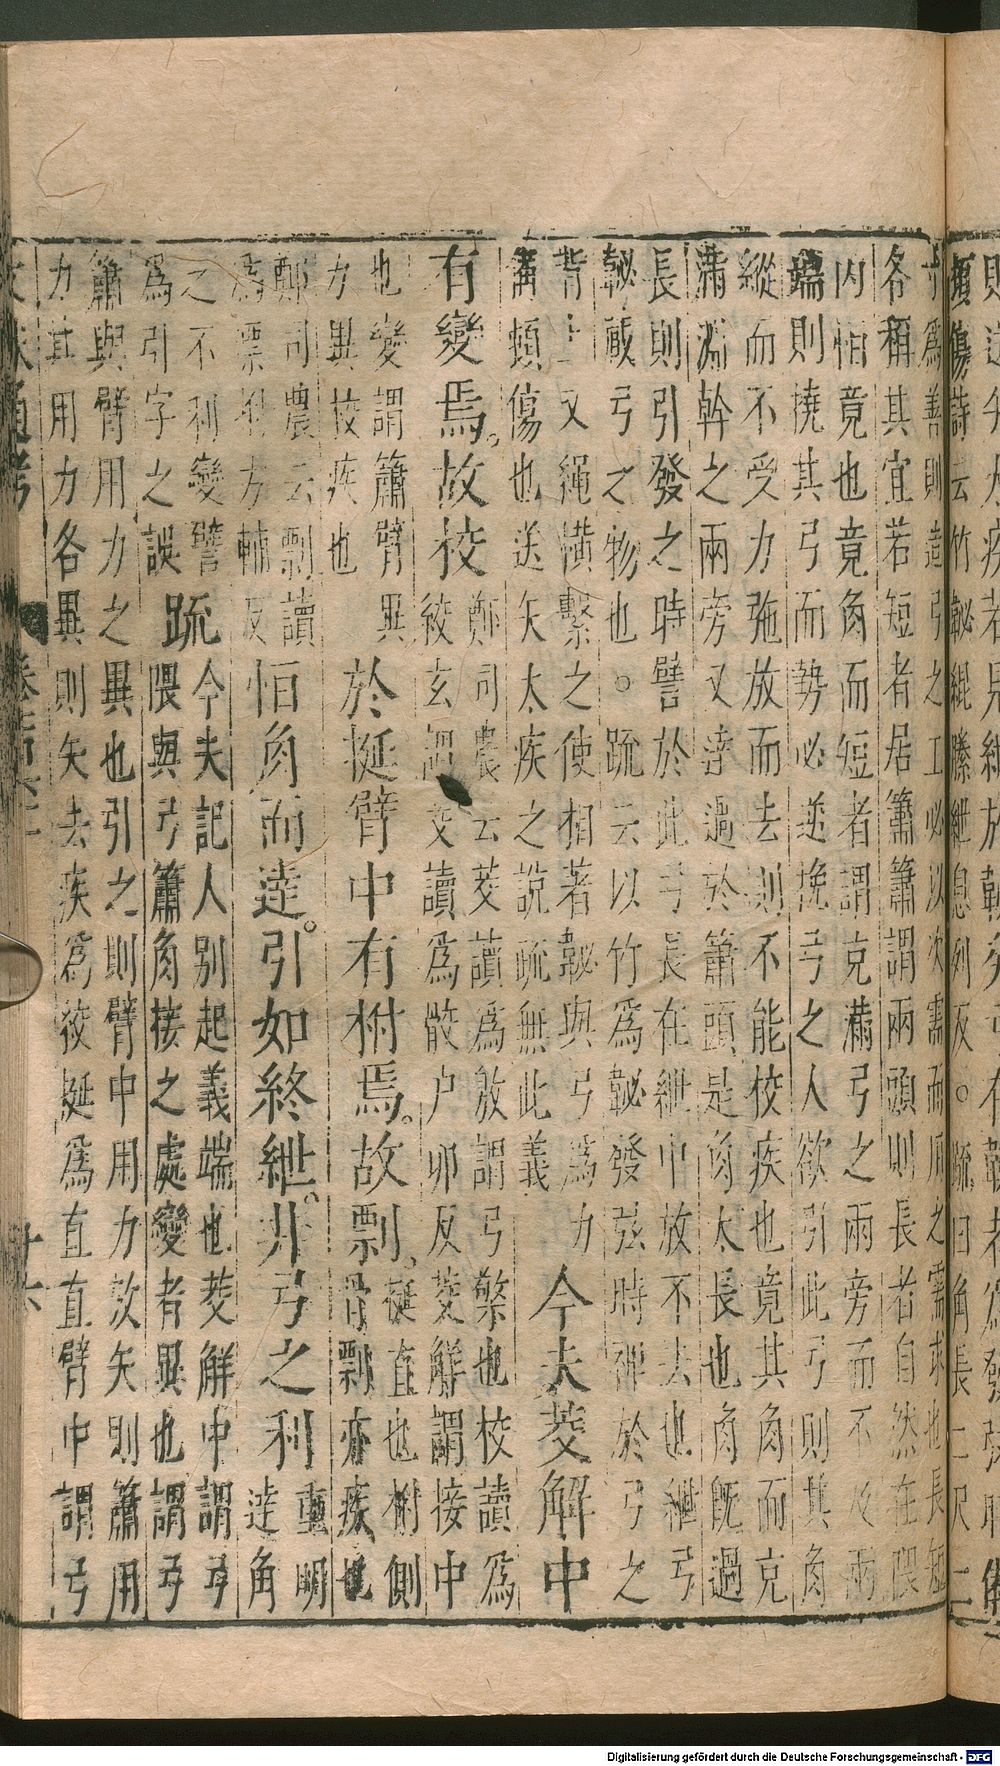 則送矢太疾若見紲於䪐矣弓有䪐者為發弦時備
頓傷詩云竹䪐緄縢紲息列反。疏曰角長二尺二
寸為善則造弓之工必以次需而順之需求也長短
各稱其宜若短者居簫簫謂兩頭則長者自然在隈
内恒竟也竟角而短者謂克滿弓之兩旁而不及兩
端則撓其弓而勢必逆挽弓之人欲引此弓則其角
縱而不受力弛放而去則不能校疾也竟其角而克
滿淵幹之兩旁又逹過於簫頭是角太長也角旣過
長則引發之時譬於此弓長在紲中放不去也紲弓
䪐藏弓之物也。疏云以竹為䪐發弦時裨於弓之
背上又繩橫繫之使相著䪐與弓為力
備頓傷也送矢太疾之說疏無此義
今夫茭解中
有變焉。故校
鄭司農云茭讀為激謂弓檠也校讀為
絞玄謂茭讀為骹户卯反茭解謂接中
也變謂簫臂異
力異校疾也
於挺臂中有柎焉。故剽、
挺直也柎側
骨剽亦疾也
鄭司農云剽讀
為漂方輔反
恒角而逹。引如終紲。非弓之利
重明
逹角
之不利變譬
為引字之誤
疏
今夫記人别起義端也茭解中謂弓
隈與弓簫角接之處變者異也謂弓
簫與臂用力之異也引之則臂中用力放矢則簫用
力其用力各異則矢去疾為筊挺為直直臂中謂弓
文獻通考
十六
Digitalisierung gefördert durch die Deutsche Forschungsgemeinschaft - DFG